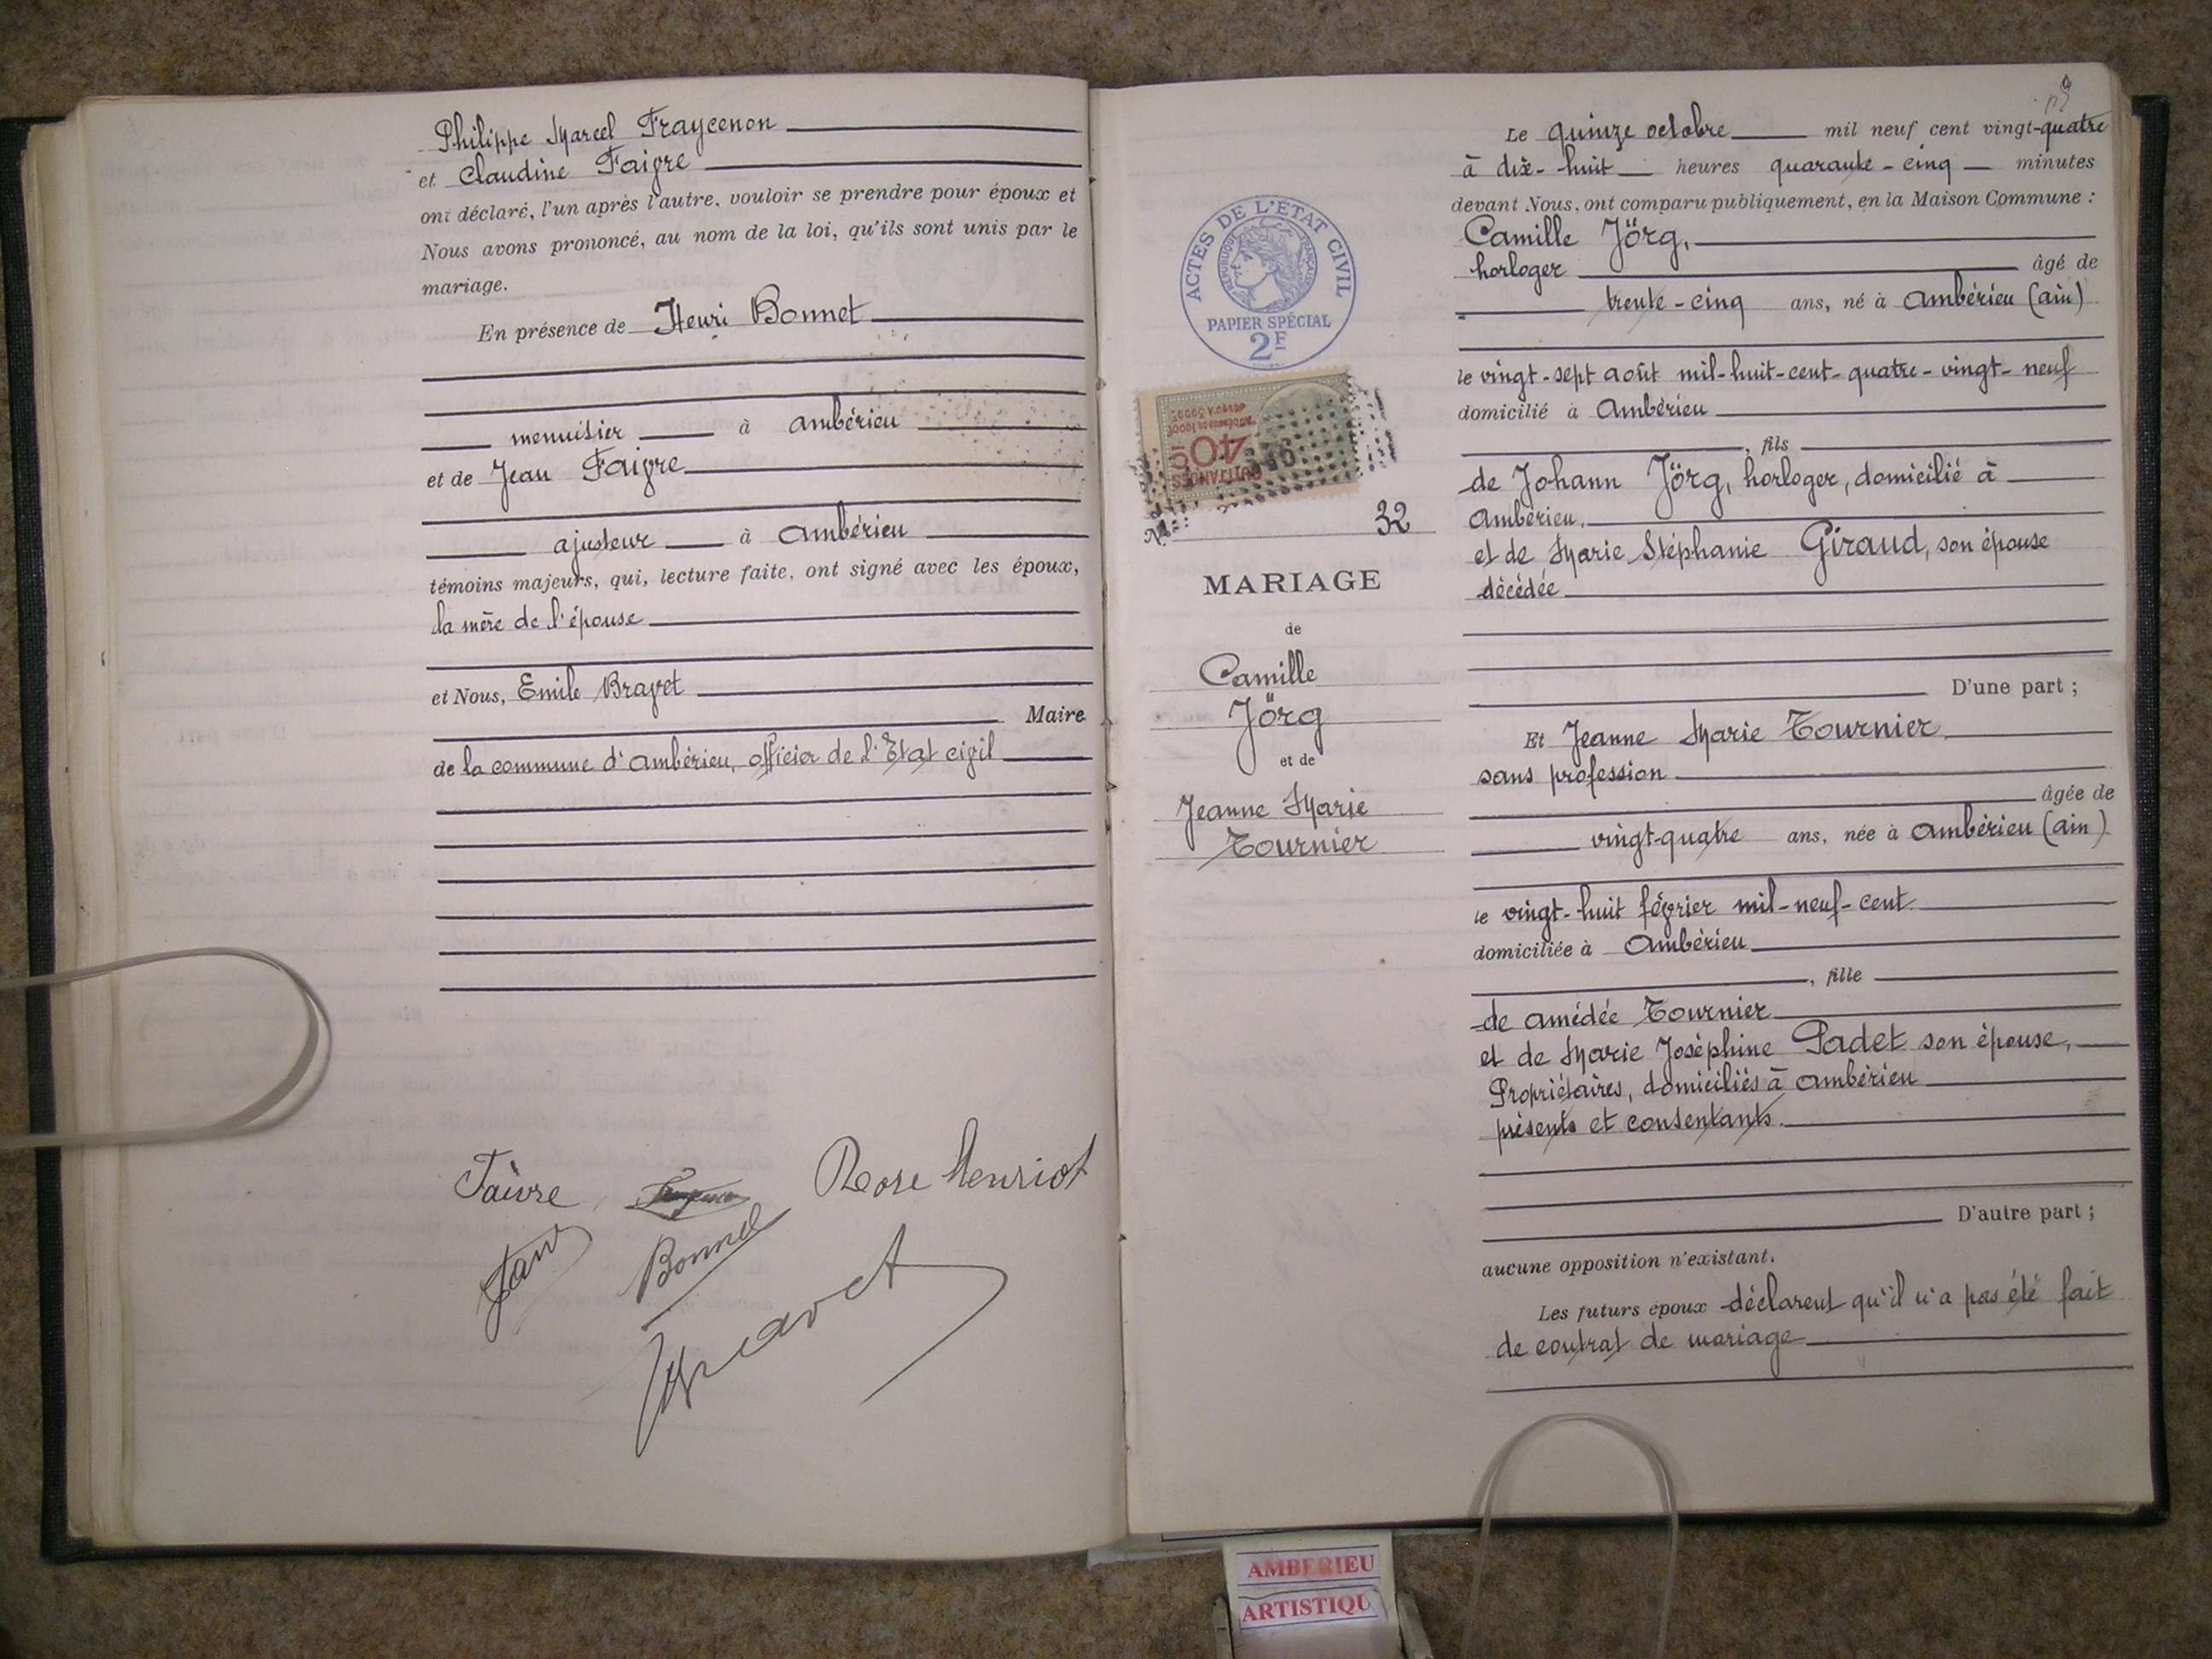 Philippe Marcel Fraycenon
et Claudine Faivre
ont déclaré, l'un après l'autre, vouloir se prendre pour époux et
Nous avons prononcé, au nom de la loi, qu'ils sont unis par le
mariage.
En présence de Henri Bonnet
menuisier à Ambérieu
et de Jean Faivre
ajusteur à Ambérieu
témoins majeurs, qui, lecture faite, ont signé avec les époux,
la mère de l'épouse
et Nous, Emile Bravet
Maire
de la commune d'Ambérieu, officier de l'Etat civil
Faivre Rose Henriot
Bonnet
Bravet
ACTES DE L'ETAT CIVIL
REPUBLIQUE FRANÇAISE
PAPIER SPÉCIAL
2F
QUITTANCES
40c
No 32
MARIAGE
de
Camille
Jörg
et de
Jeanne Marie
Tournier
Le quinze octobre mil neuf cent vingt-quatre
à dix-huit heures quarante-cinq minutes
devant Nous, ont comparu publiquement, en la Maison Commune :
Camille Jörg,
horloger âgé de
trente-cinq ans, né à Ambérieu (Ain)
le vingt-sept août mil-huit-cent-quatre-vingt-neuf
domicilié à Ambérieu
, fils
de Johann Jörg, horloger, domicilié à
Ambérieu,
et de Marie Stéphanie Giraud, son épouse
décédée
D'une part ;
Et Jeanne Marie Tournier
sans profession
âgée de
vingt-quatre ans, née à Ambérieu (Ain)
le vingt-huit février mil-neuf-cent
domiciliée à Ambérieu
, fille
de Amédée Tournier
et de Marie Joséphine Padet son épouse,
Propriétaires, domiciliés à Ambérieu
présents et consentants.
D'autre part ;
aucune opposition n'existant.
Les futurs époux déclarent qu'il n'a pas été fait
de contrat de mariage
AMBERIEU
ARTISTIQU